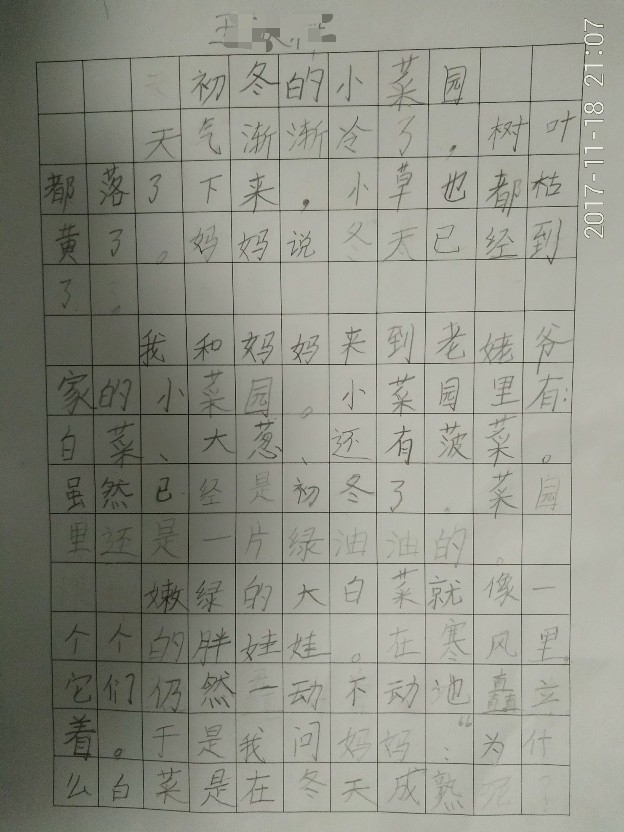 初冬的小菜园
天气渐渐冷了，树叶
都落了下来，小草也都枯
黄了。妈妈说冬天已经到
了。
我和妈妈来到老姥爷
家的小菜园。小菜园里有：
白菜、大葱、还有菠菜。
虽然已经是初冬了．菜园
里还是一片绿油油的。
嫩绿的大白菜就像一
个个的胖娃娃。在寒风里。
它们仍然一动不动地矗立
着。于是我问妈妈：“为什
么白菜是在冬天成熟呢？
2017-11-18 21:07